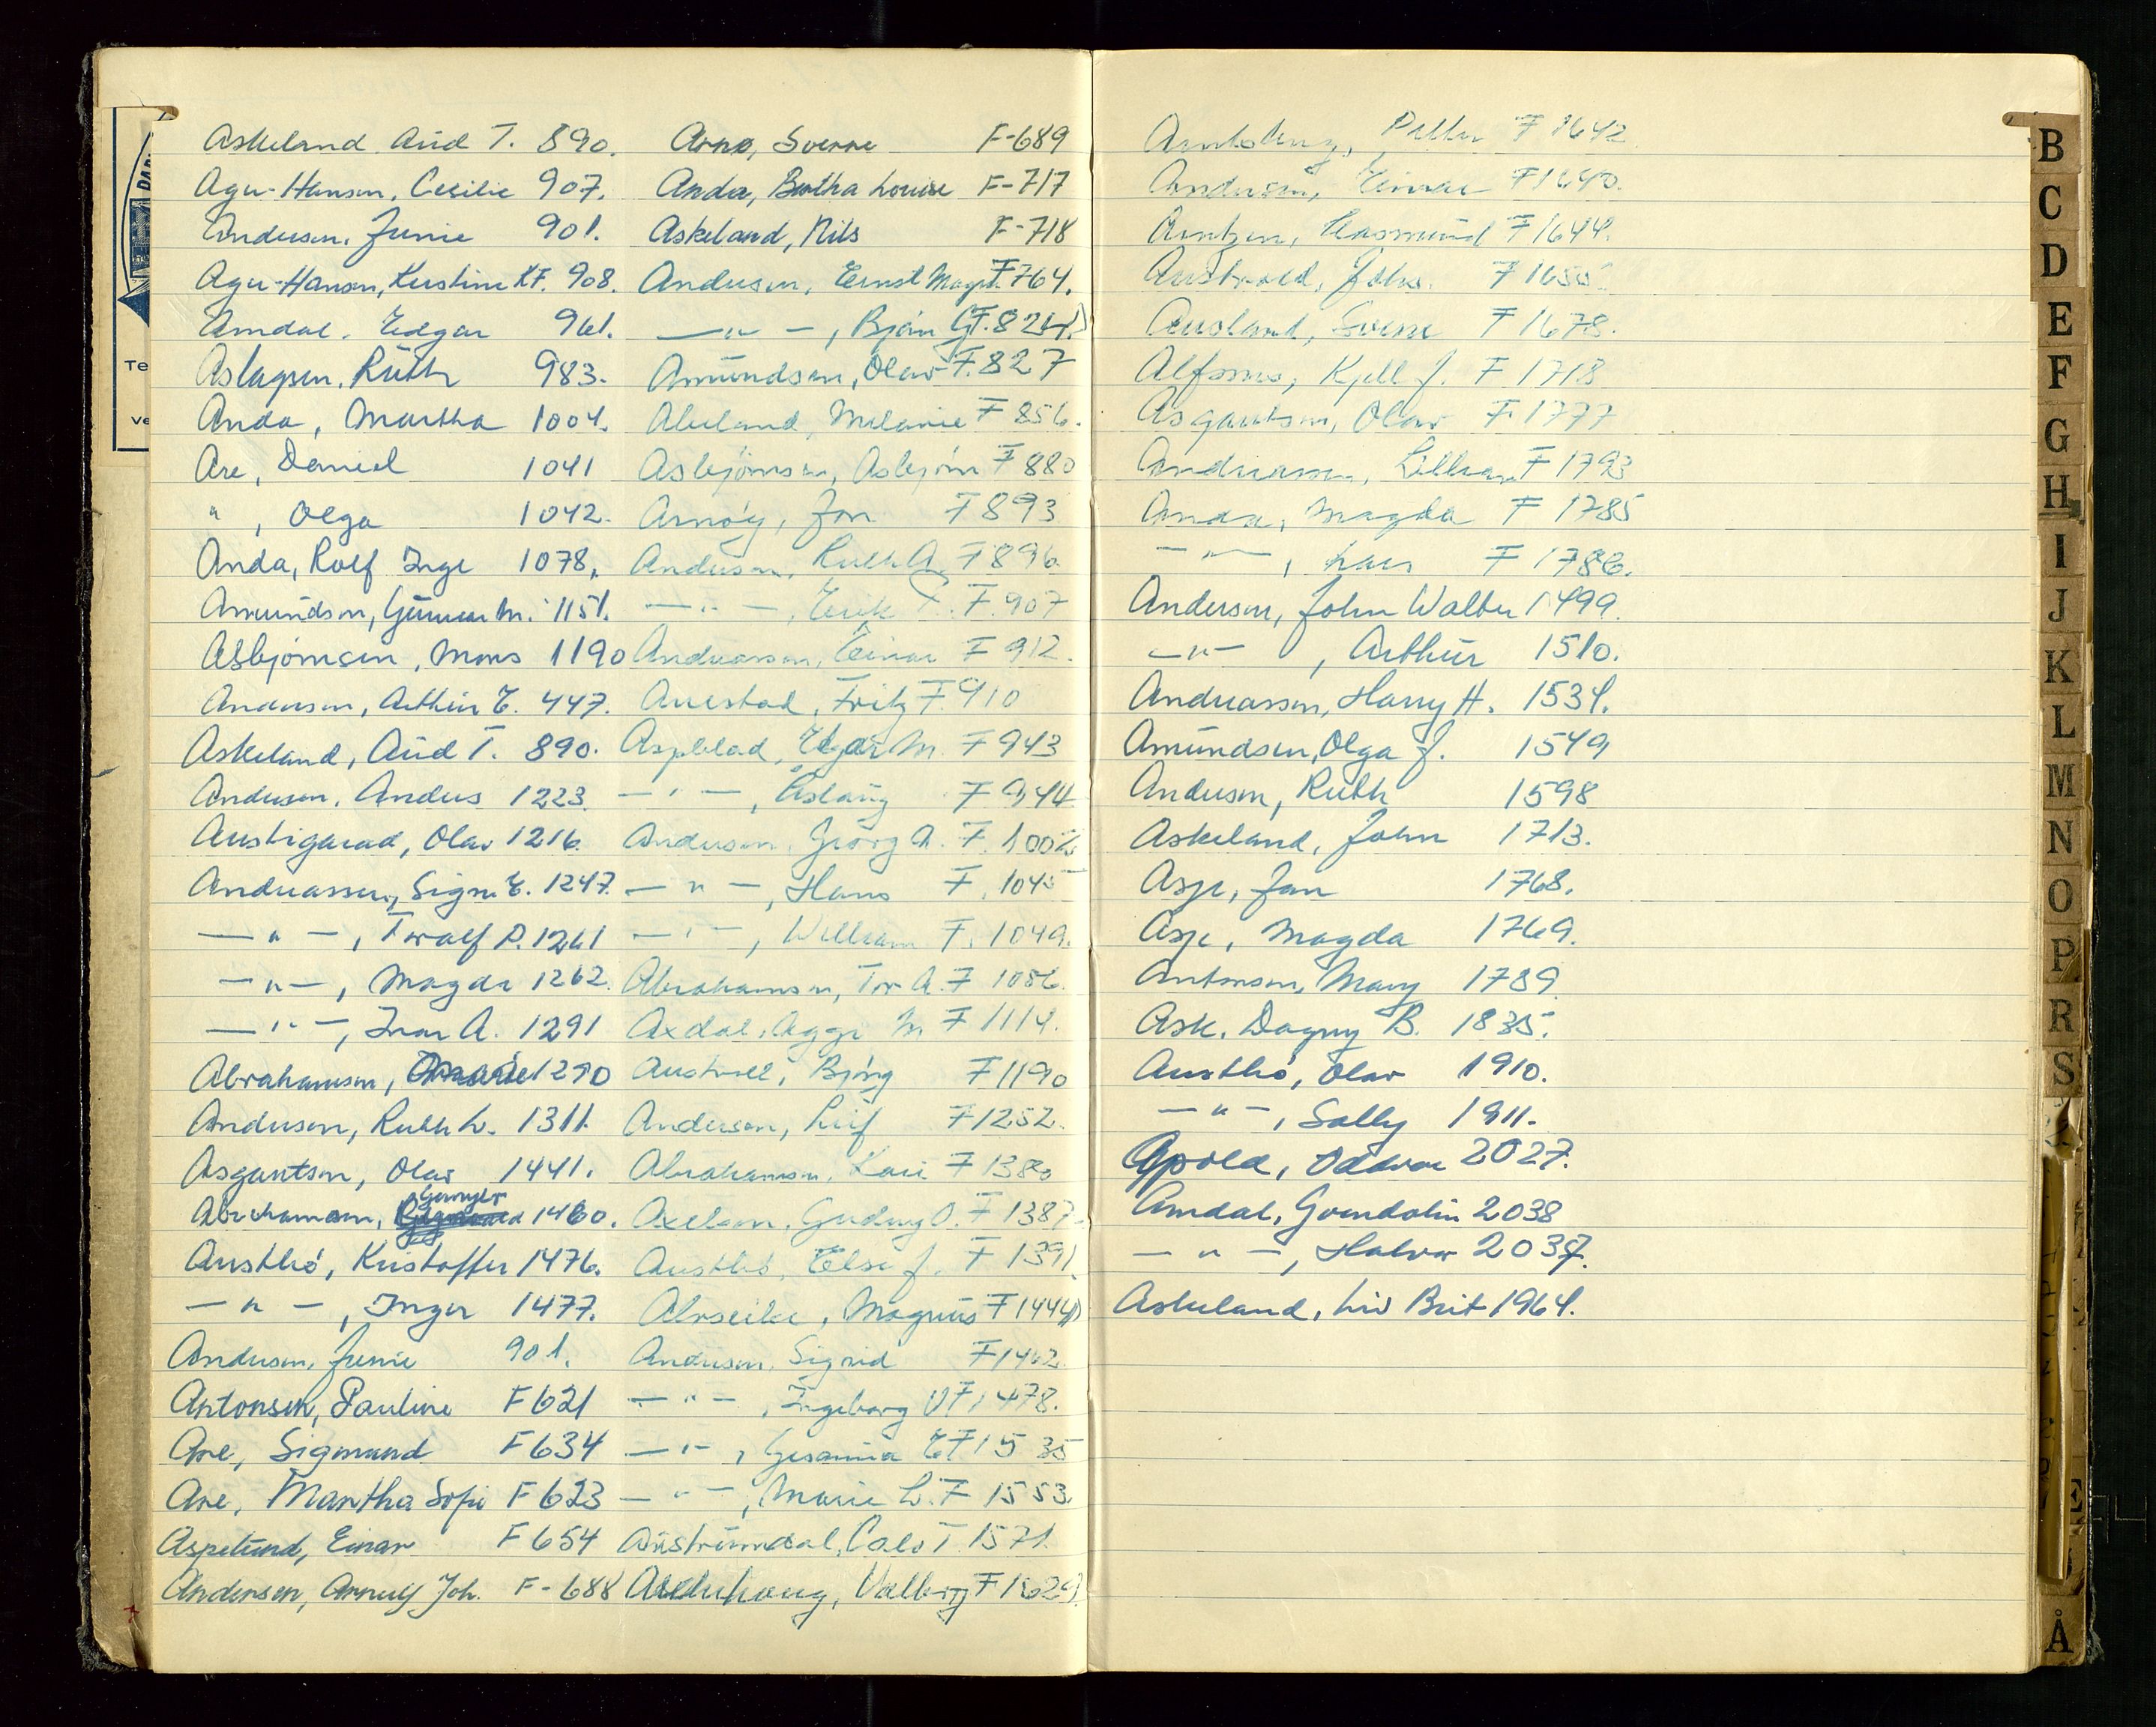 Askeland Aud T. 890.
Ager-Hansen, Cecilie 907.
Andersen, Junie 901.
Ager-Hansen, Kirstine K.F. 908.
Amdal, Edgar 961.
Aslagsen, Ruth 983.
Anda, Martha 1004.
Are, Daniel 1041
" , Olga 1042.
Anda, Rolf Inge 1078.
Amundsen, Gunnar M. 1151.
Asbjörnsen, Mons 1190
Andersen, Arthur E. 447.
Askeland, Aud T. 890.
Andersen, Anders 1223.
Austigarad, Olav 1216.
Andreassen, Signe E. 1247.
— " — , Toralf P. 1261
— " — , Magda 1262.
— " — , Ivar A. 1291
Abrahamsen, 1290
Andersen, Ruth L. 1311.
Asgautsen, Olav 1441.
Abrahamsen, 1460.
Austbö, Kristoffer 1476.
— " — , Inger 1477.
Andersen, Junie 901.
Antonsen, Pauline F 621
Are, Sigmund F 634
Are, Martha Sofie F 623
Aspelund, Einar F 654
Andersen, Arnulf Joh. F-688
Arne, Sverre F-689
Anda, Bertha Louise F-717
Askeland, Nils F-718
Andersen, Ernst Magn. F 764.
— " — , Björn G. F. 824.
Amundsen, Olav F. 827
Abeland, Melanie F 856.
Asbjörnsen, Asbjörn F 880
Arnöy, Jon F 893
Andersen, Ruth A. F 896.
— " — , Erik T. F. 907
Andreassen, Einar F 912.
Auestad, Fritz F. 910
Aspblad, Edgar M. F 943
— " — , Åslaug F 944
Andersen, Georg A. F. 1002
— " — , Hans F. 1045
— " — , William F. 1049.
Abrahamsen, Tor A. F 1086.
Axdal, Aage M. F 1114.
Austvoll, Björg F 1190
Andersen, Leif F 1252.
Abrahamsen, Kari F 1380
Axelsen, Gudny O. F 1387.
Austbö, Else J. F 1391.
Alvseike, Magnus F 1444
Andersen, Sigrid F 1462
— " — , Ingeborg V F 1478.
— " — , Gesanna E F 1535
— " — , Marie L. F 1553.
Austrumdal, Calo T. 1571.
Valborg F 1629.
Petter F 1642.
Andersen, Einar F 1640.
Arntzen, Rasmund F 1644.
Austvold, Johs. F 1655.
Ausland, Sverre F 1678.
Alfsnes, Kjell J. F 1718
Asgautsen, Olav F 1777
Andreassen, Lillian F 1793
Anda, Magda F 1785
— " — , Lars F 1786.
Andersen, John Walter 1499.
— " — , Arthur 1510.
Andreassen, Harry H. 1534.
Amundsen, Olga J. 1549
Andersen, Ruth 1598
Askeland, John 1713.
Asp, Jan 1768.
Asp, Magda 1769.
Antonsen, Mary 1789.
Ask, Dagny B. 1835.
Austbö, Olav 1910.
— " — , Sally 1911.
Apold, Oddvar 2027.
Amdal, Gvendolin 2038
— " — , Halvor 2037.
Askeland, Liv Brit 1964.
B
C
D
E
F
G
H
I
J
K
L
M
N
O
P
R
S
Å
Te
ve